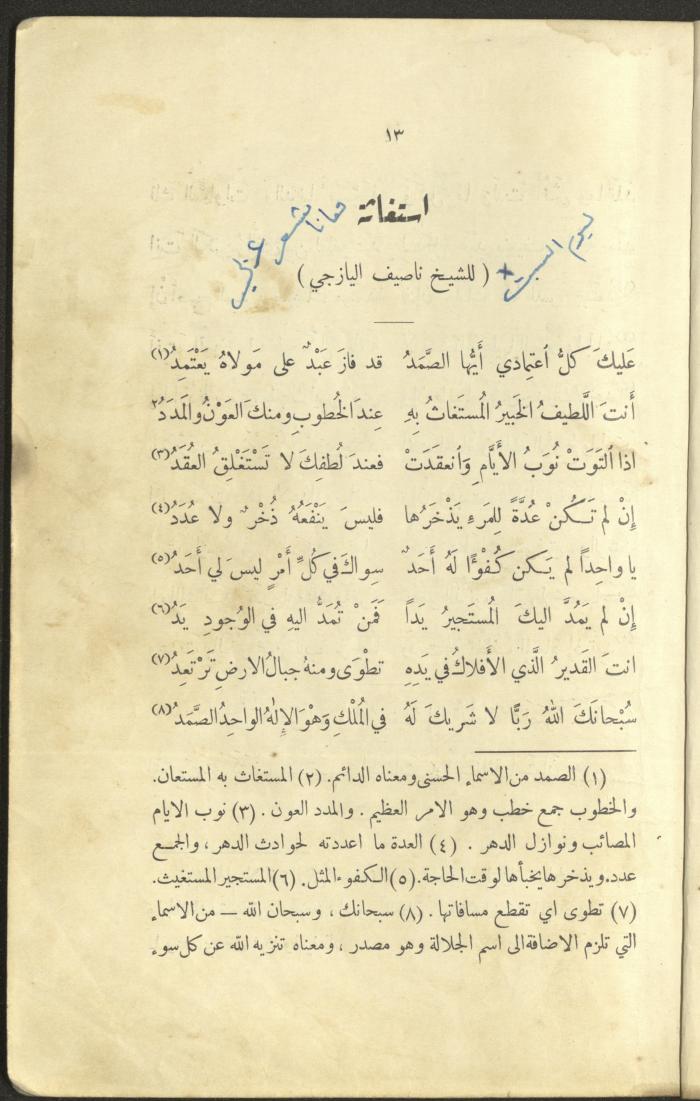 ١٣
استغاثة
ليوم السبت +
(للشيخ ناصيف اليازجي)
عَليكَ كلُّ ٱعتِمادي أَيُّها الصَّمَدُ قد فازَ عَبْدٌ على مَولاهُ يَعْتَمِدُ(١)
أَنتَ اللَّطيفُ الخَبيرُ المُستَغاثُ بِهِ عِندَ الخُطوبِ ومنكَ العَوْنُ والمَدَدُ٢
اذا ٱلتَوَتْ نُوَبُ الأَيَّامِ وَٱنعقَدَتْ فعندَ لُطفِكَ لا تَسْتَغْلِقُ العُقَدُ(٣)
إِنْ لم تَكُنْ عُدَّةً لِلمَرءِ يَذْخَرُها فليسَ يَنْفَعُهُ ذُخْرٌ ولا عُدَدُ(٤)
يا واحِداً لم يَكن كُفْوًا لَهُ أَحَدٌ سِواكَ في كُلِّ أَمْرٍ ليسَ لي أَحَدُ(٥)
إِنْ لم يَمُدَّ اليكَ المُستَجيرُ يَداً فَمَنْ تُمَدُّ اليهِ في الوُجودِ يَدُ(٦)
انتَ القَديرُ الَّذي الأَفلاكُ في يَدِهِ تطْوَى ومنهُ جبالُ الارضِ تَرْتَعِدُ(٧)
سُبْحانَكَ اللهُ رَبًّا لا شَريكَ لَهُ في المُلْكِ وَهْوَ الإِلٰهُ الواحِدُ الصَّمَدُ(٨)
(١) الصمد من الاسماء الحسنى ومعناه الدائم. (٢) المستغاث به المستعان.
والخطوب جمع خطب وهو الامر العظيم. والمدد العون. (٣) نوب الايام
المصائب ونوازل الدهر. (٤) العدة ما اعددته لحوادث الدهر، والجمع
عدد. ويذخرها يخبأها لوقت الحاجة. (٥) الكفوء المثل. (٦) المستجير المستغيث.
(٧) تطوى اي تقطع مسافاتها. (٨) سبحانك، وسبحان الله — من الاسماء
التي تلزم الاضافة الى اسم الجلالة وهو مصدر، ومعناه تنزيه الله عن كل سوء